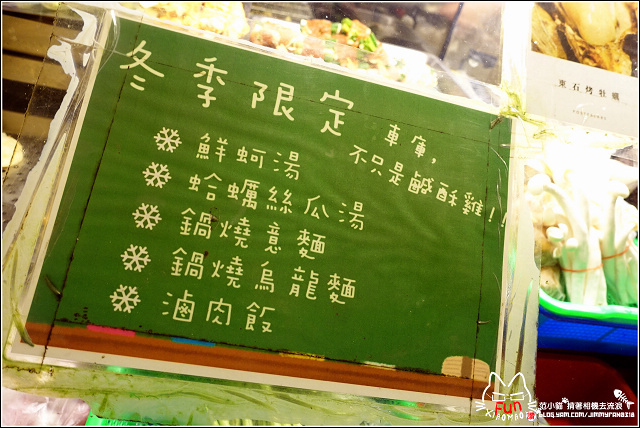 冬季限定
車庫,
不只是鹹酥雞!!
鮮蚵湯
蛤蠣絲瓜湯
鍋燒意麵
鍋燒烏龍麵
滷肉飯
東石烤牡蠣
FUN
范小貓*揹著相機去流浪
BLOG.YAM.COM/JIMMYFAN0318